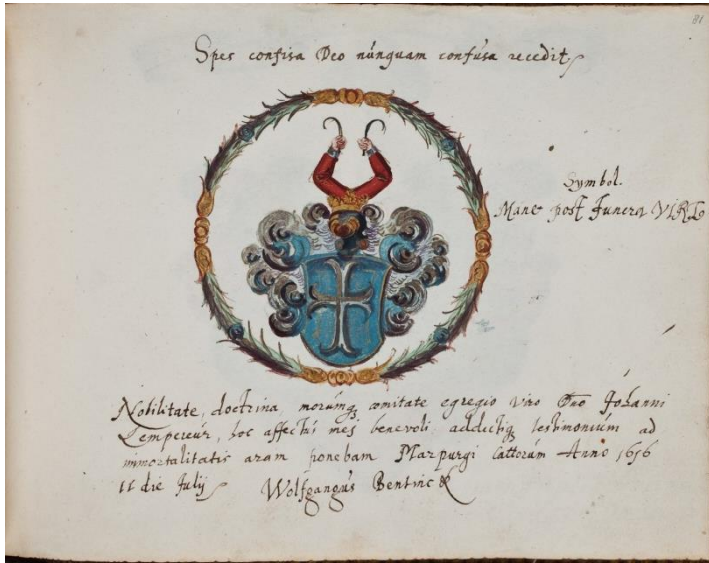 81
Spes confisa Deo nunquam confusa recedit
Symbol.
Mane post Funera VIRT
Nobilitate, doctrina, morumq comitate egregio viro Dno Johanni
Lempereur, hoc affectus mei benevoli addictiq testimonium ad
immortalitatis aram ponebam Marpurgi Cattorum Anno 1616
11 die Julij Wolfgangus Bentinck